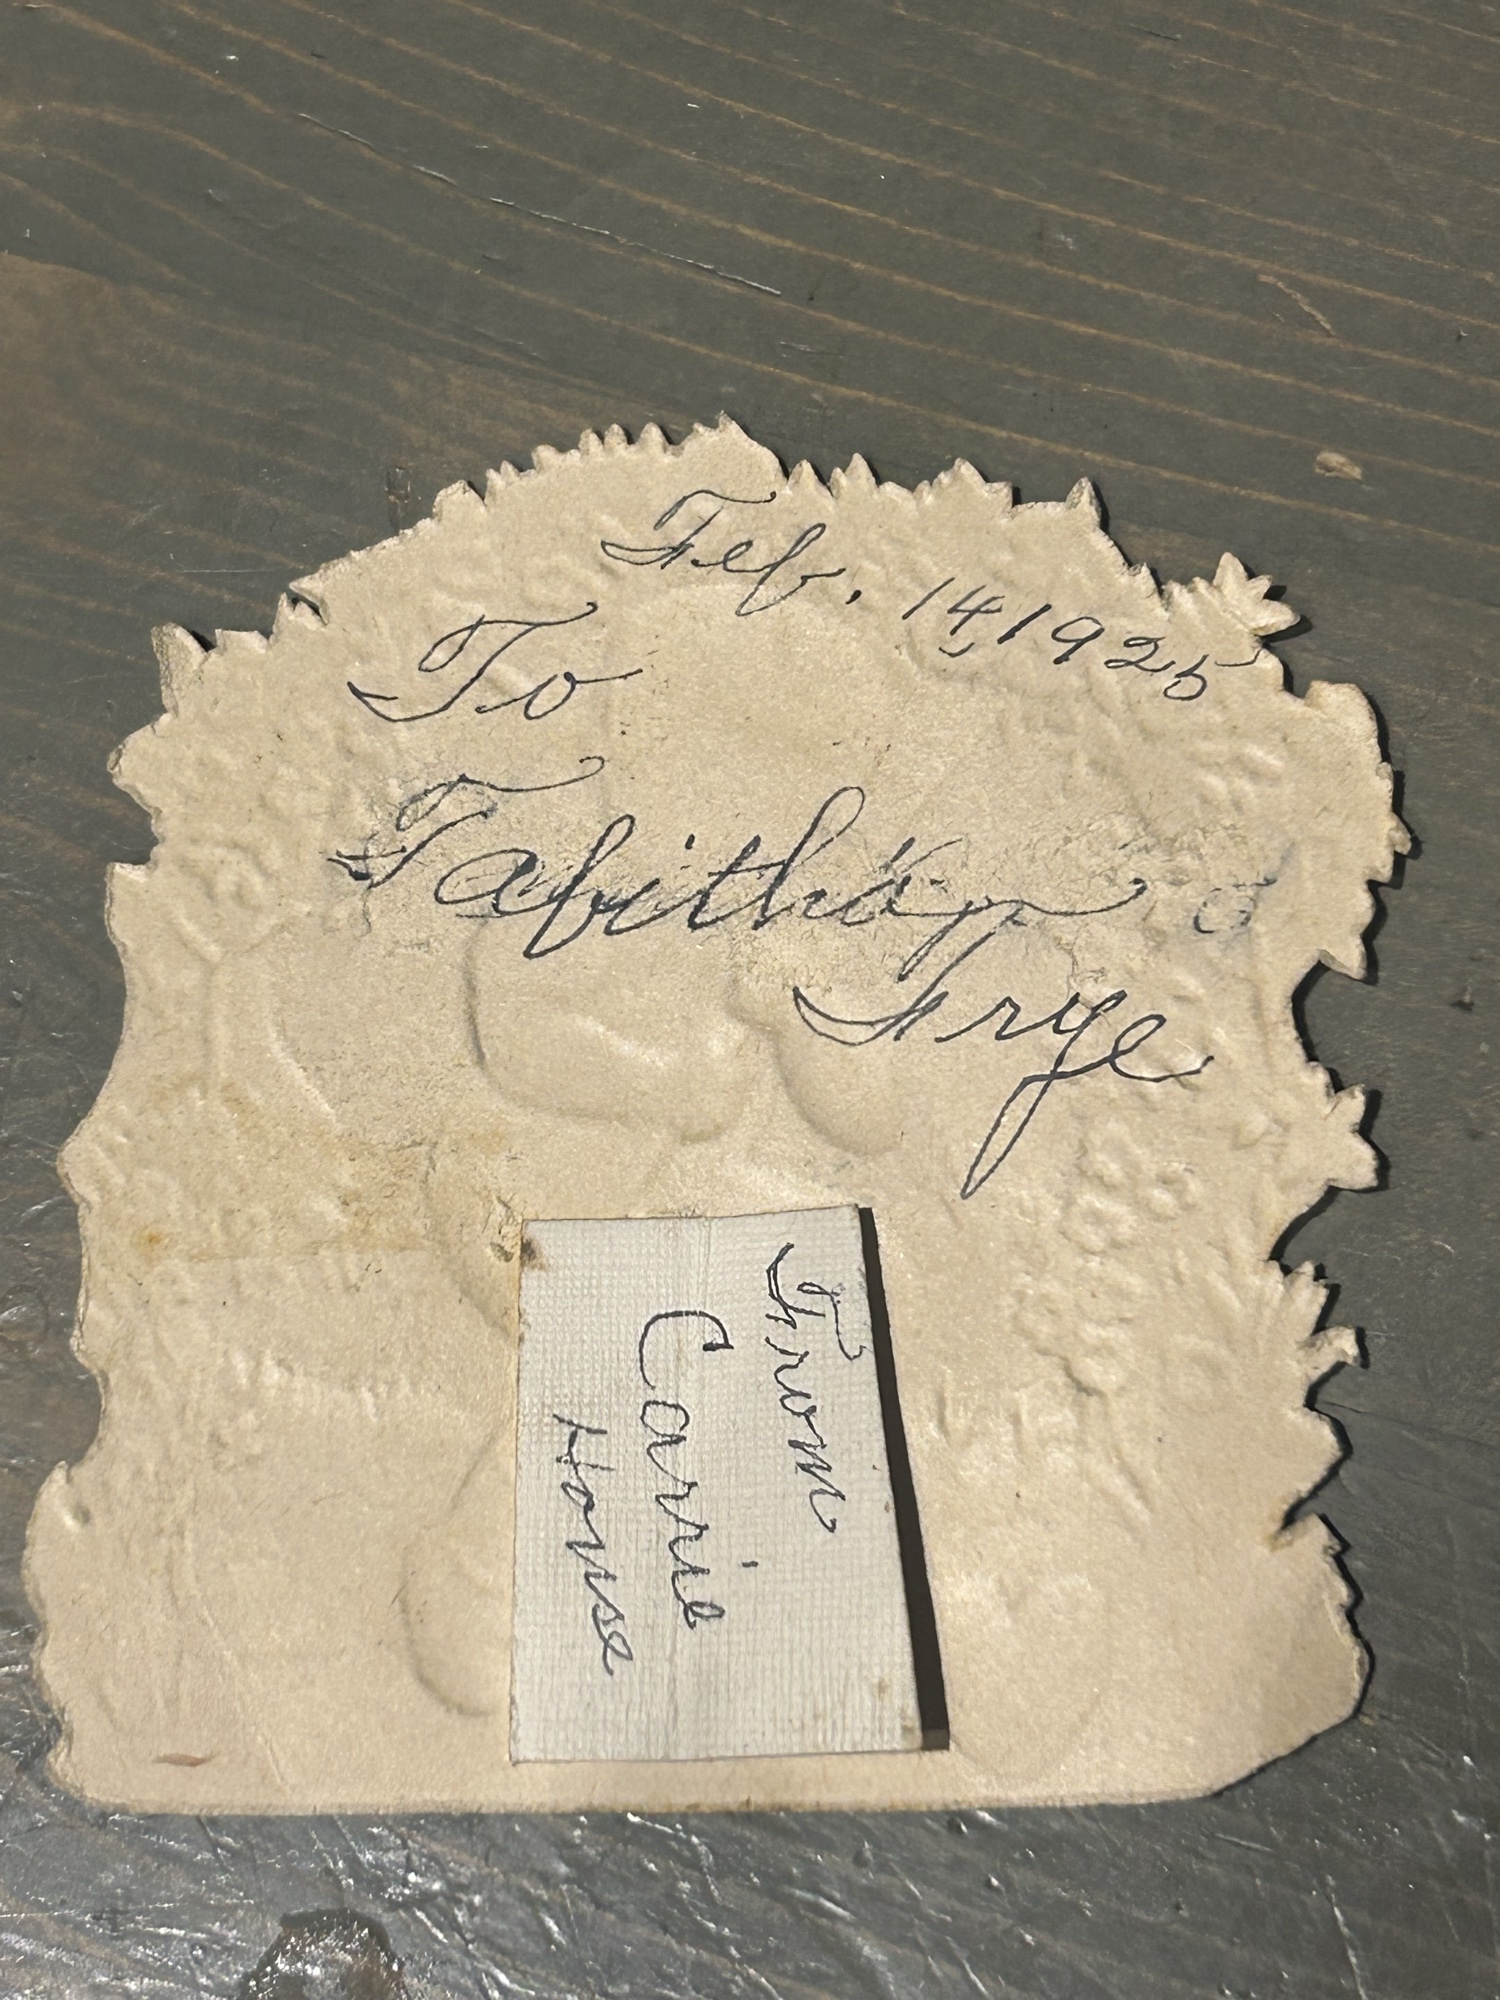 Feb. 14, 1925
To
Tabitha
Frye
From
Carrie
House